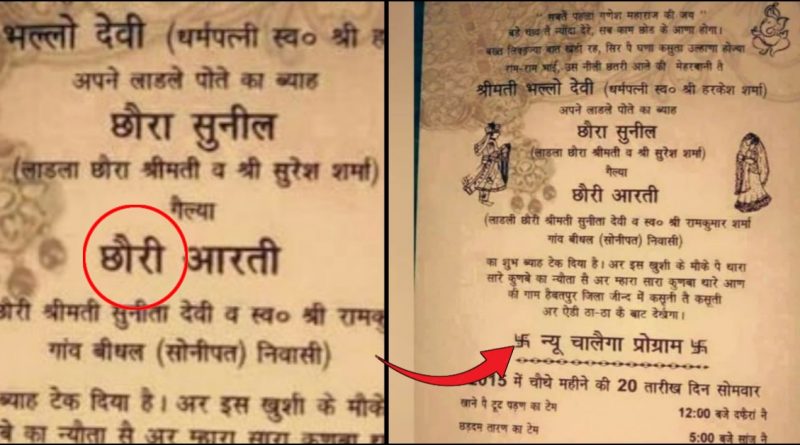 भल्लो देवी (धर्मपत्नी स्व० श्री
अपने लाडले पोते का ब्याह
छौरा सुनील
(लाडला छौरा श्रीमती व श्री सुरेश शर्मा)
गैल्या
छौरी आरती
श्रीमती सुनीता देवी व स्व० श्री
गांव बीधल (सोनीपत) निवासी)
ब्याह टेक दिया है। अर इस खुशी के मौके
का न्यौता सै अर म्हारा सारा कुणबा
" सबतै पहल्ां गणेश महाराज की जय "
बड़े चाव तै न्योंदा देरे, सब काम छोड कै आणा होगा।
बख्त लिकड़ग्या बात खड़ी रह, सिर पै घणा कसुता उल्हाणा होज्या
राम-राम भाई, उस नीली छतरी आले की मेहरबानी तै
श्रीमती भल्लो देवी (धर्मपत्नी स्व० श्री हरकेश शर्मा)
अपने लाडले पोते का ब्याह
छौरा सुनील
(लाडला छौरा श्रीमती व श्री सुरेश शर्मा)
गैल्या
छौरी आरती
(लाडली छौरी श्रीमती सुनीता देवी व स्व० श्री रामकुमार शर्मा
गांव बीधल (सोनीपत) निवासी)
का शुभ ब्याह टेक दिया है। अर इस खुशी के मौके पै थारा
सारे कुणबे का न्यौता सै अर म्हारा सारा कुणबा थारे आण
की गाम हैबतपुर जिला जीन्द में कसूती तै कसूती
अर ऐडी ठा-ठा के बाट देखेगा।
卐 न्यू चालैगा प्रोग्राम 卐
2015 में चौथे महीने की 20 तारीख दिन सोमवार
खाने पै टूट पड़ण का टेम 12:00 बजे दफैरां नै
छड़दम तारण का टेम 5:00 बजे सांज नै